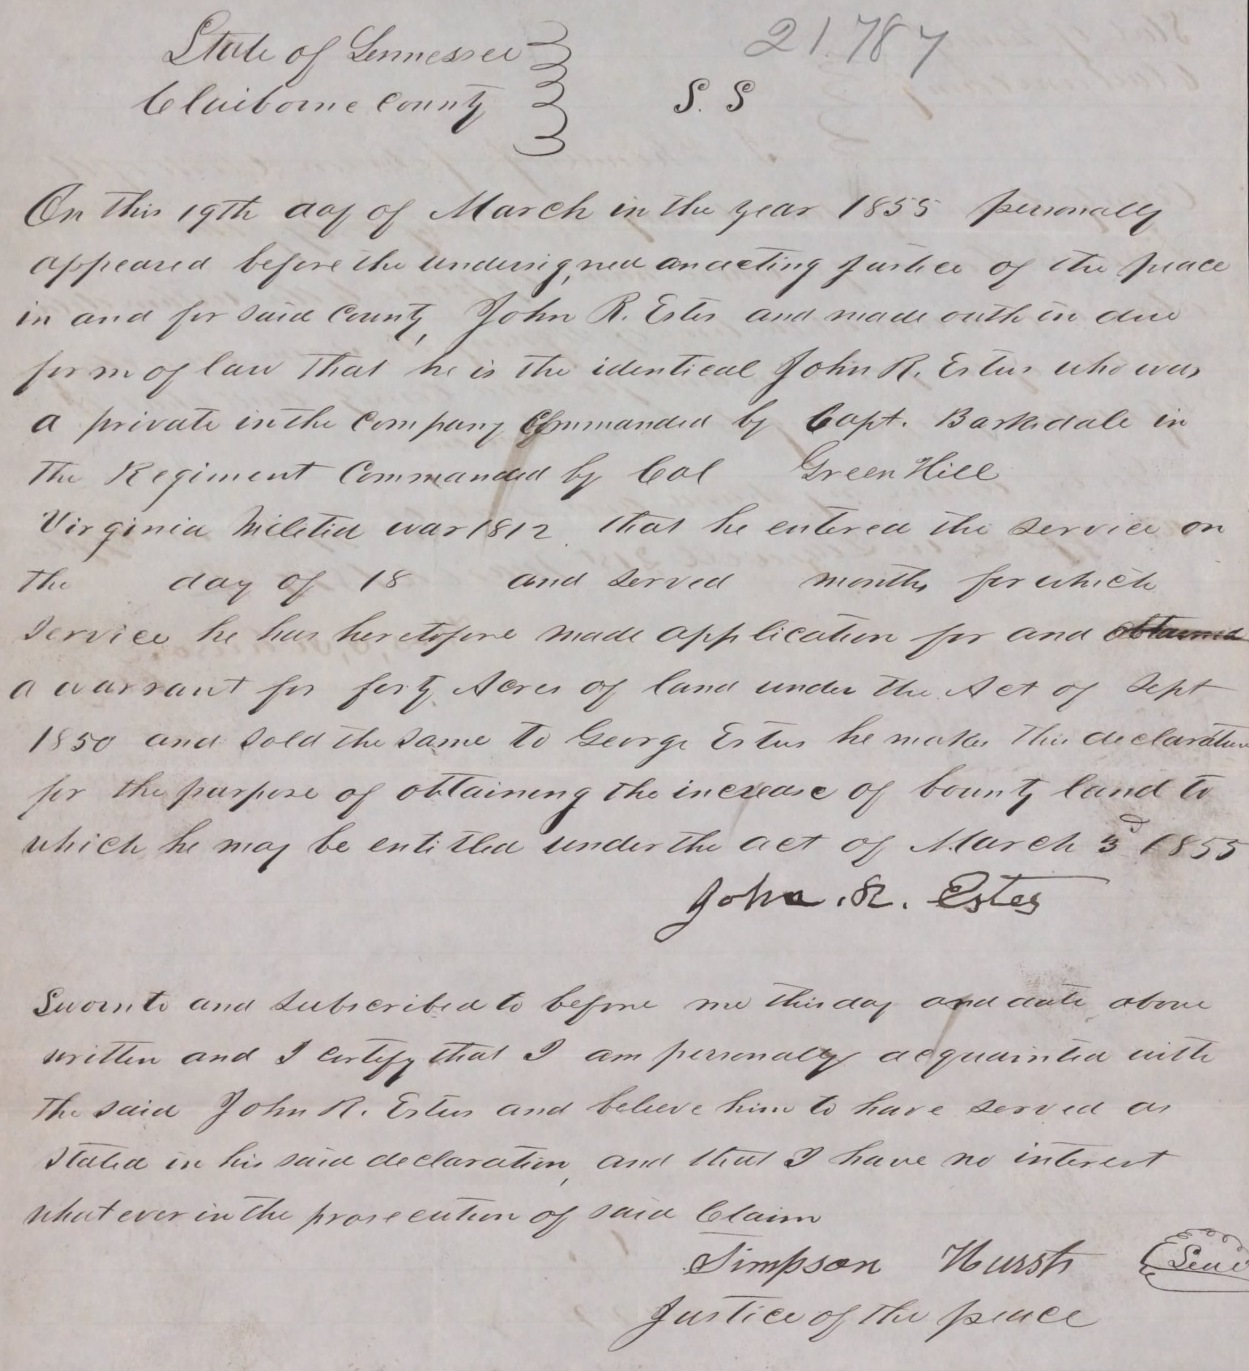 State of Tennessee
21.787
Claiborne County
S. S
On this 19th day of March in the year 1855 personally
appeared before the undersigned, an acting Justice of the peace
in and for said County, John R. Estes and made oath in due
form of law that he is the identical John R. Estus who was
a private in the Company Commanded by Capt. Barksdale in
The Regiment Commanded by Col Green Hill
Virginia Militia war 1812 that he entered the service on
the day of 18 and served months for which
service he has heretofore made application for and obtained
a warrant for forty Acres of land under the Act of Sept
1850 and sold the same to George Estus he makes this declaration
for the purpose of obtaining the increase of bounty land to
which he may be entitled under the act of March 3d 1855
John R. Estes
Sworn to and subscribed to before me this day and date above
written and I certify that I am personally acquainted with
the said John R. Estus and believe him to have served as
stated in his said declaration, and that I have no interest
whatever in the prosecution of said Claim
Simpson Hurst
Justice of the peace